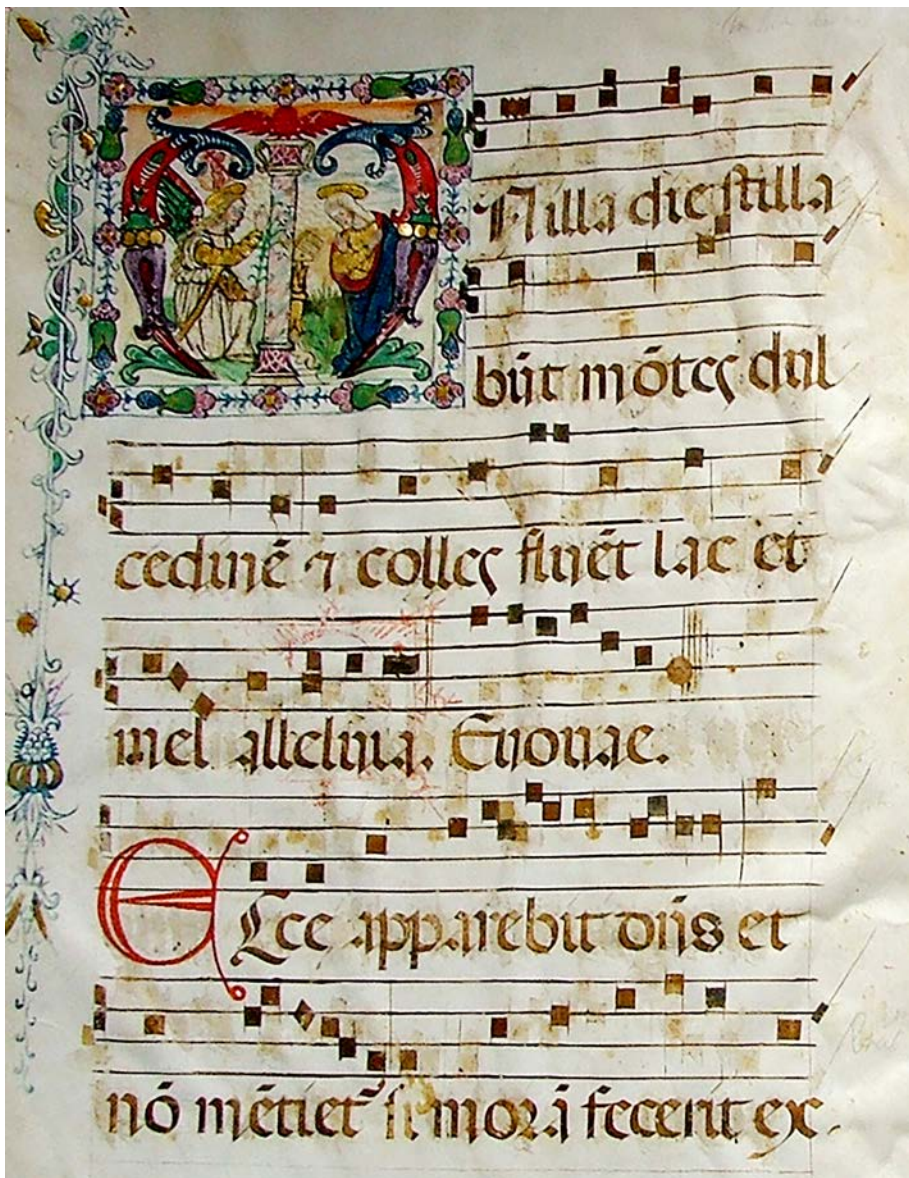 N illa die stilla
būt mōtes dul
cedinē ⁊ colles fluēt lac et
mel alleluia. Euouae.
Ecce apparebit dn̄s et
nō mētiet᷑ si morā fecerit ex